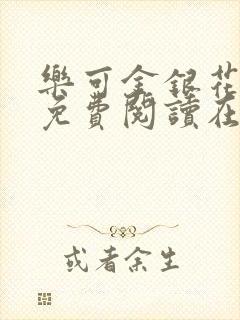 樂可金銀花
免費閱讀在
或者余生